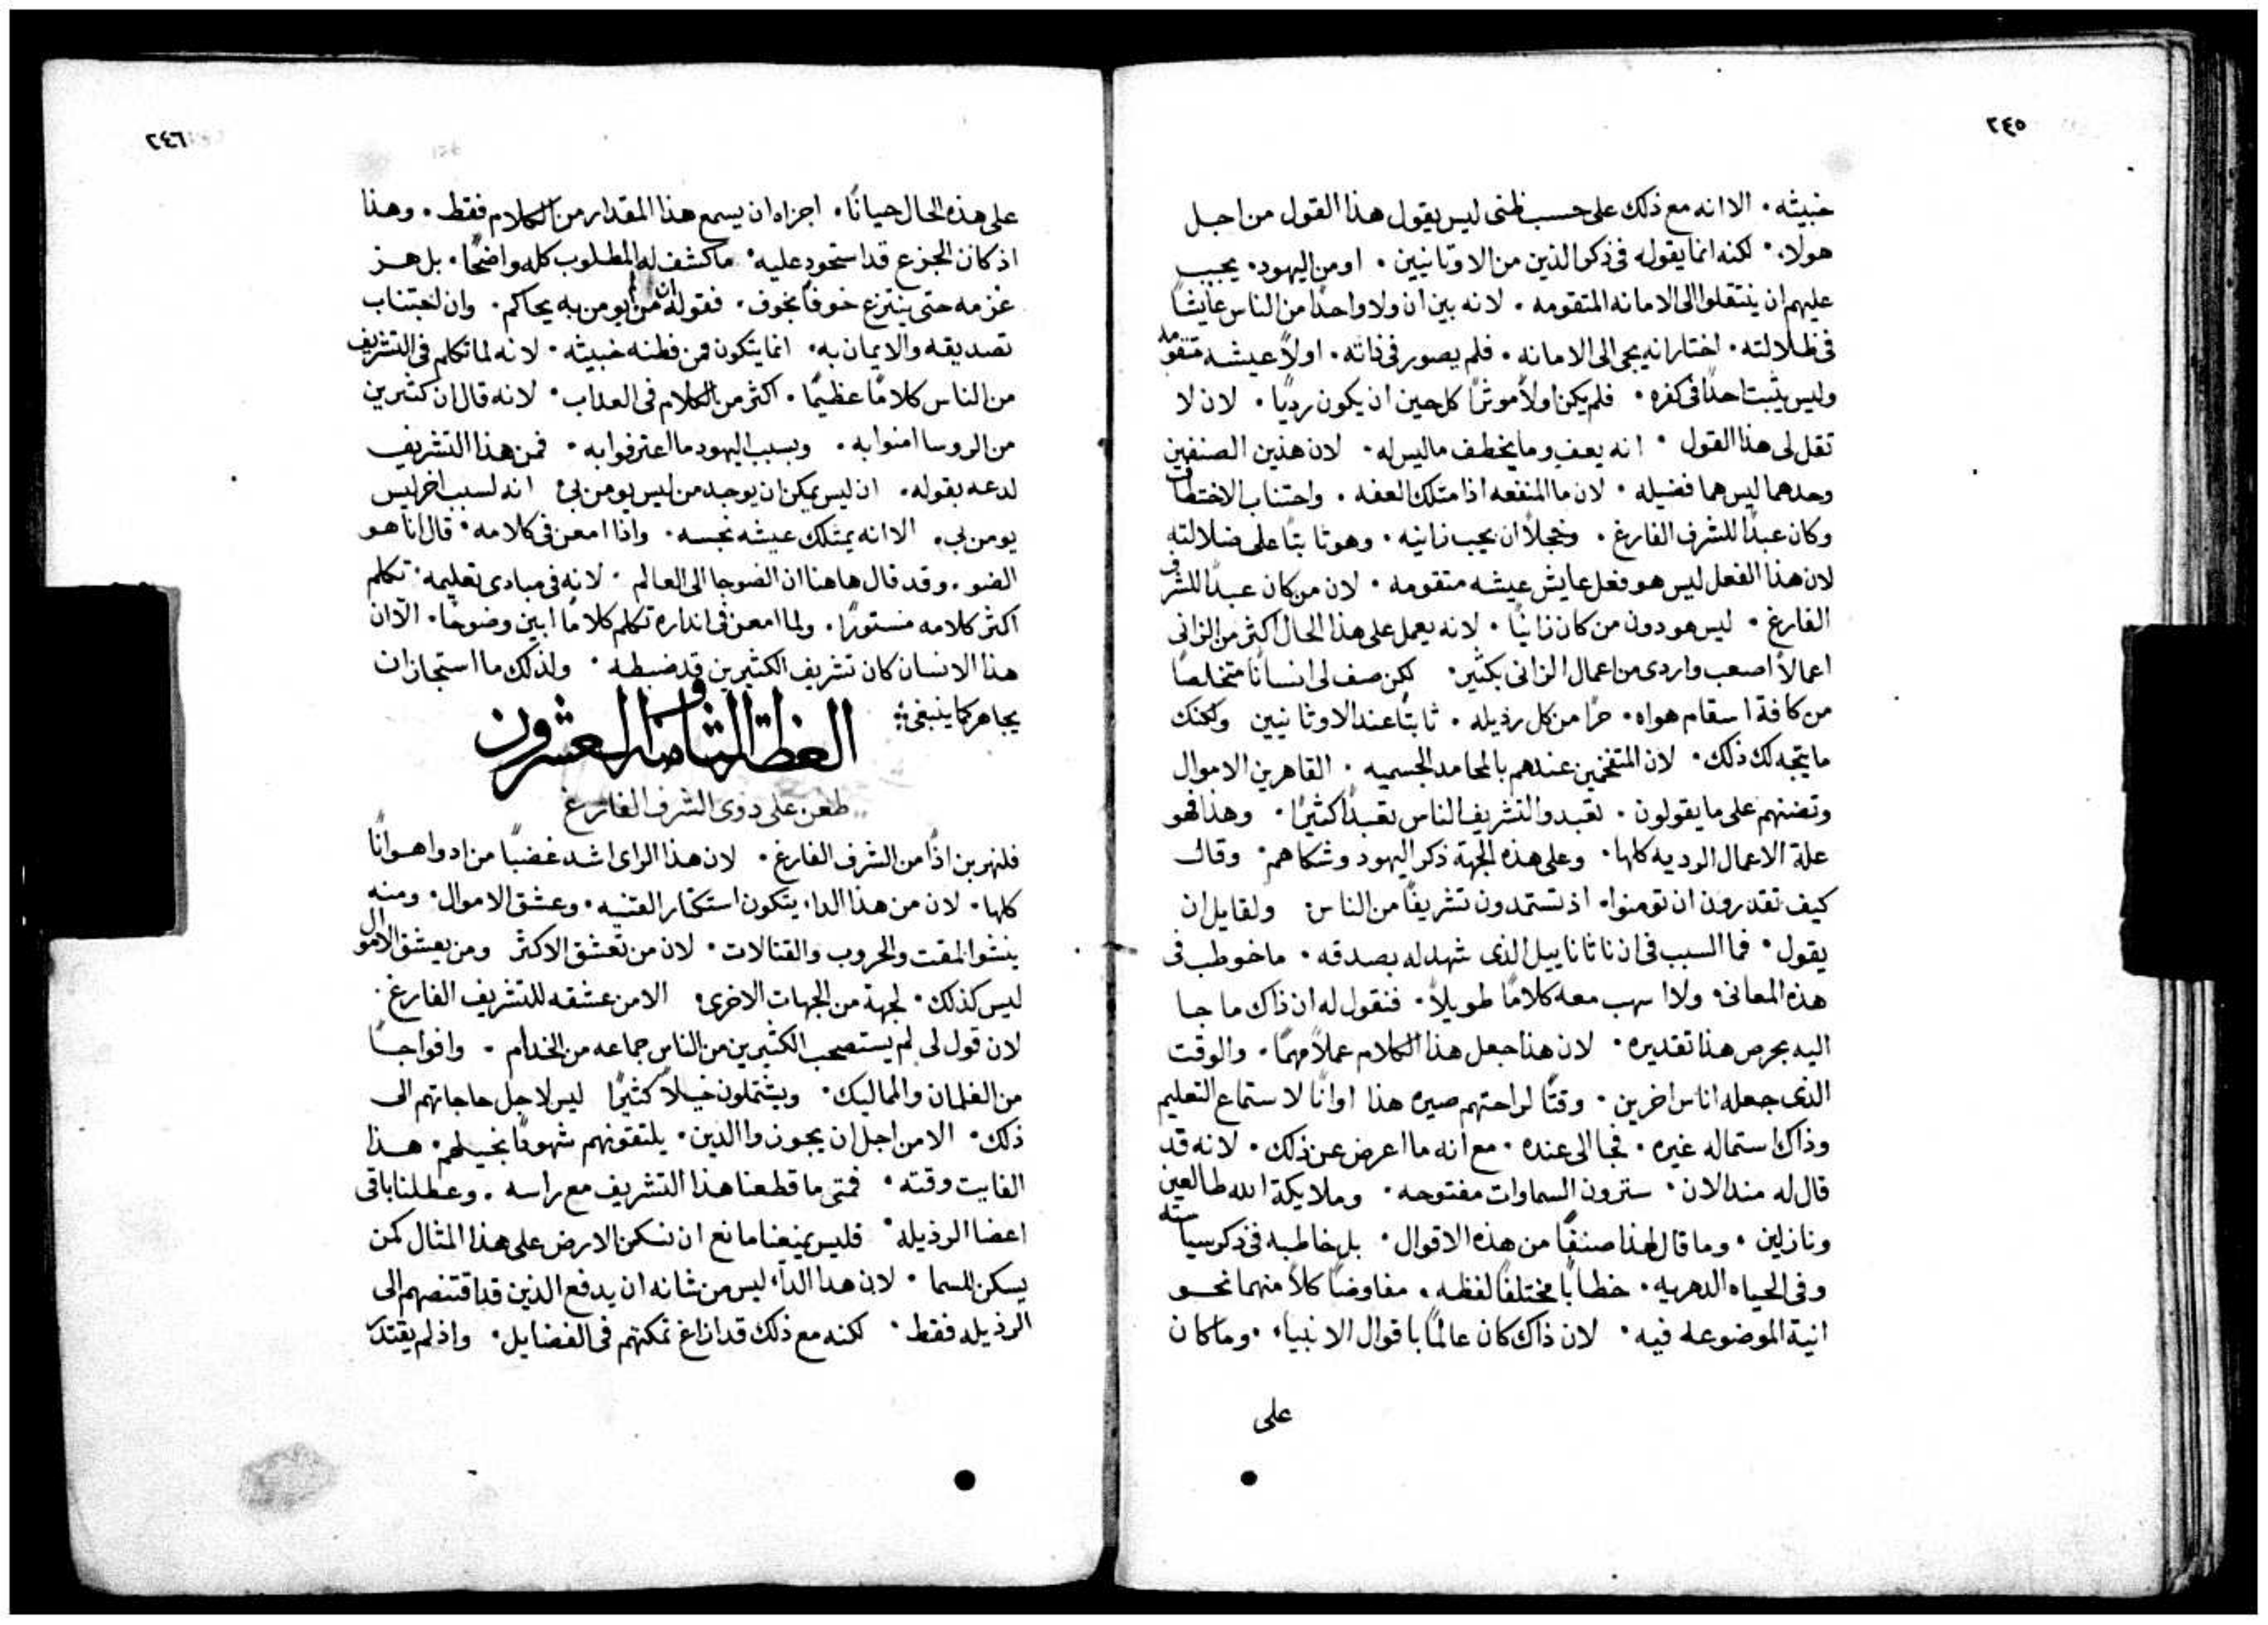 ٢٤٥
خبيثه. الا انه مع ذلك على حسب ظنى ليس يقول هذا القول من اجل
هولاء. لكنه انما يقوله فى ذكر الذين من الاوثانيين. او من اليهود. يجب
عليهم ان ينتقلوا الى الامانه المتقومه. لانه بين ان ولا واحدًا من الناس عايشًا
فى ظلالته. اختار انه يجى الى الامانه. فلم يصور فى ذاته. اولاً عيشه متقومه
وليس يثبت احدًا فى كفره. فلم يكن اولاً موثرًا كل حين ان يكون رديًا. لان لا
تقل لى هذا القول. انه يعف وما يخطف ما ليس له. لان هذين الصنفين
وحدهما ليس هما فضيله. لان ما المنفعه اذا متلك العفه. واجتناب الاختطاف
وكان عبدًا للشرف الفارغ. وخجلاً ان يجيب زانيه. وهو ثابتًا على ضلالته
لان هذا الفعل ليس هو فعل عايش عيشه متقومه. لان من كان عبدًا للشرف
الفارغ. ليس هو دون من كان زانيًا. لانه يعمل على هذا الحال اكثر من الزانى
اعمالاً اصعب واردى من اعمال الزانى بكثير. لكن صف لى انسانًا متخلصًا
من كافة اسقام هواه. حرًا من كل رذيله. ثابتًا عند الاوثانيين ولكنك
ما يتجه لك ذلك. لان المتفخمين عندهم بالمحامد الجسميه. القاهرين الاموال
على ما يقولون. تعبدوا لتشريف الناس تعبدًا كثيرًا. وهذا فهو
علة الاعمال الرديه كلها. وعلى هذه الجهة ذكر اليهود وشكاهم. وقال
كيف تقدرون ان تومنوا. اذ تستمدون تشريفًا من الناس ولقايل ان
يقول. فما السبب فى ان ناثاناييل الذى شهد له بصدقه. ما خوطب فى
هذه المعانى. ولا اسهب معه كلامًا طويلاً. فنقول له ان ذاك ما جا
اليه بحرص هذا تقديره. لان هذا جعل هذا الكلام عملاً مهمًا. والوقت
الذى جعله اناس اخرين. وقتًا لراحتهم صيره هذا اوانًا لاستماع التعليم
وذاك استماله غيره. فجا الى عنده. مع انه ما اعرض عن ذلك. لانه قد
قال له منذ الان. سترون السماوات مفتوحه. وملايكة الله طالعين
ونازلين. وما قال لهذا صنفًا من هذه الاقوال. بل خاطبه فى ذكر سياسته
وفى الحياه الدهريه. خطابًا مختلفًا لفظه. مفاوضًا كلاً منهما نحو
انية الموضوعه فيه. لان ذاك كان عالمًا باقوال الانبياء. وما كان
على
٢٤٦
على هذه الحال حيانًا. اجزاه ان يسمع هذا المقدار من الكلام فقط. وهذا
اذ كان الجزع قد استحوذ عليه. ما كشف له المطلوب كله واضحًا. بل هز
عزمه حتى ينتزع خوفًا بخوف. فقوله ان من لا يومن به يحاكم. وان اجتناب
تصديقه والايمان به. انما يتكون من فطنه خبيثه. لانه لما تكلم فى التشريف
من الناس كلامًا عظيمًا. اكثر من الكلام فى العذاب. لانه قال ان كثيرين
من الروسا امنوا به. وبسبب اليهود ما اعترفوا به. فمن هذا التشريف
لدعه بقوله. ان ليس يمكن ان يوجد من ليس يومن بى انه لسبب اخر ليس
يومن بى. الا انه يمتلك عيشه نجسه. واذا امعن فى كلامه. قال انا هو
الضو. وقد قال هاهنا ان الضو جا الى العالم. لانه فى مبادى تعليمه. تكلم
اكثر كلامه مستورًا. ولما امعن فى انداره تكلم كلامًا ابين وضوحًا. الا ان
هذا الانسان كان تشريف الكثيرين قد ضبطه. ولذلك ما استجاز ان
يجاهر كما ينبغى
العظة الثامنة والعشرون
طعن على ذوى الشرف الفارغ
فلنهربن اذًا من الشرف الفارغ. لان هذا الراى اشد غضبًا من ادوا هوانًا
كلها. لان من هذا الداء يتكون استكثار القنيه. وعشق الاموال. ومنه
ينشوا المقت والحروب والقتالات. لان من تعشق الاكثر ومن يعشق الاموال
ليس كذلك. لجهة من الجهات الاخرى الا من عشقه للتشريف الفارغ.
لان قول لى لم يستصحب الكثيرين من الناس جماعه من الخدام. وافواجًا
من الغلمان والمماليك. ويشتملون خيلاً كثيرًا ليس لاجل حاجاتهم الى
ذلك. الا من اجل ان يجوزوا الذين. يلتقونهم شهودًا بخيلهم. هذا
الفايت وقته. فمتى ما قطعنا هذا التشريف مع راسه. وعطلنا باقى
اعضا الرذيله. فليس يمنعنا مانع ان نسكن الارض على هذا المثال كمن
يسكن للسما. لان هدا الداء ليس من شانه ان يدفع الذين قد اقتنصهم الى
الرذيله فقط. لكنه مع ذلك قد ازاغ تمكنهم فى الفضايل. واذ لم يقتدر